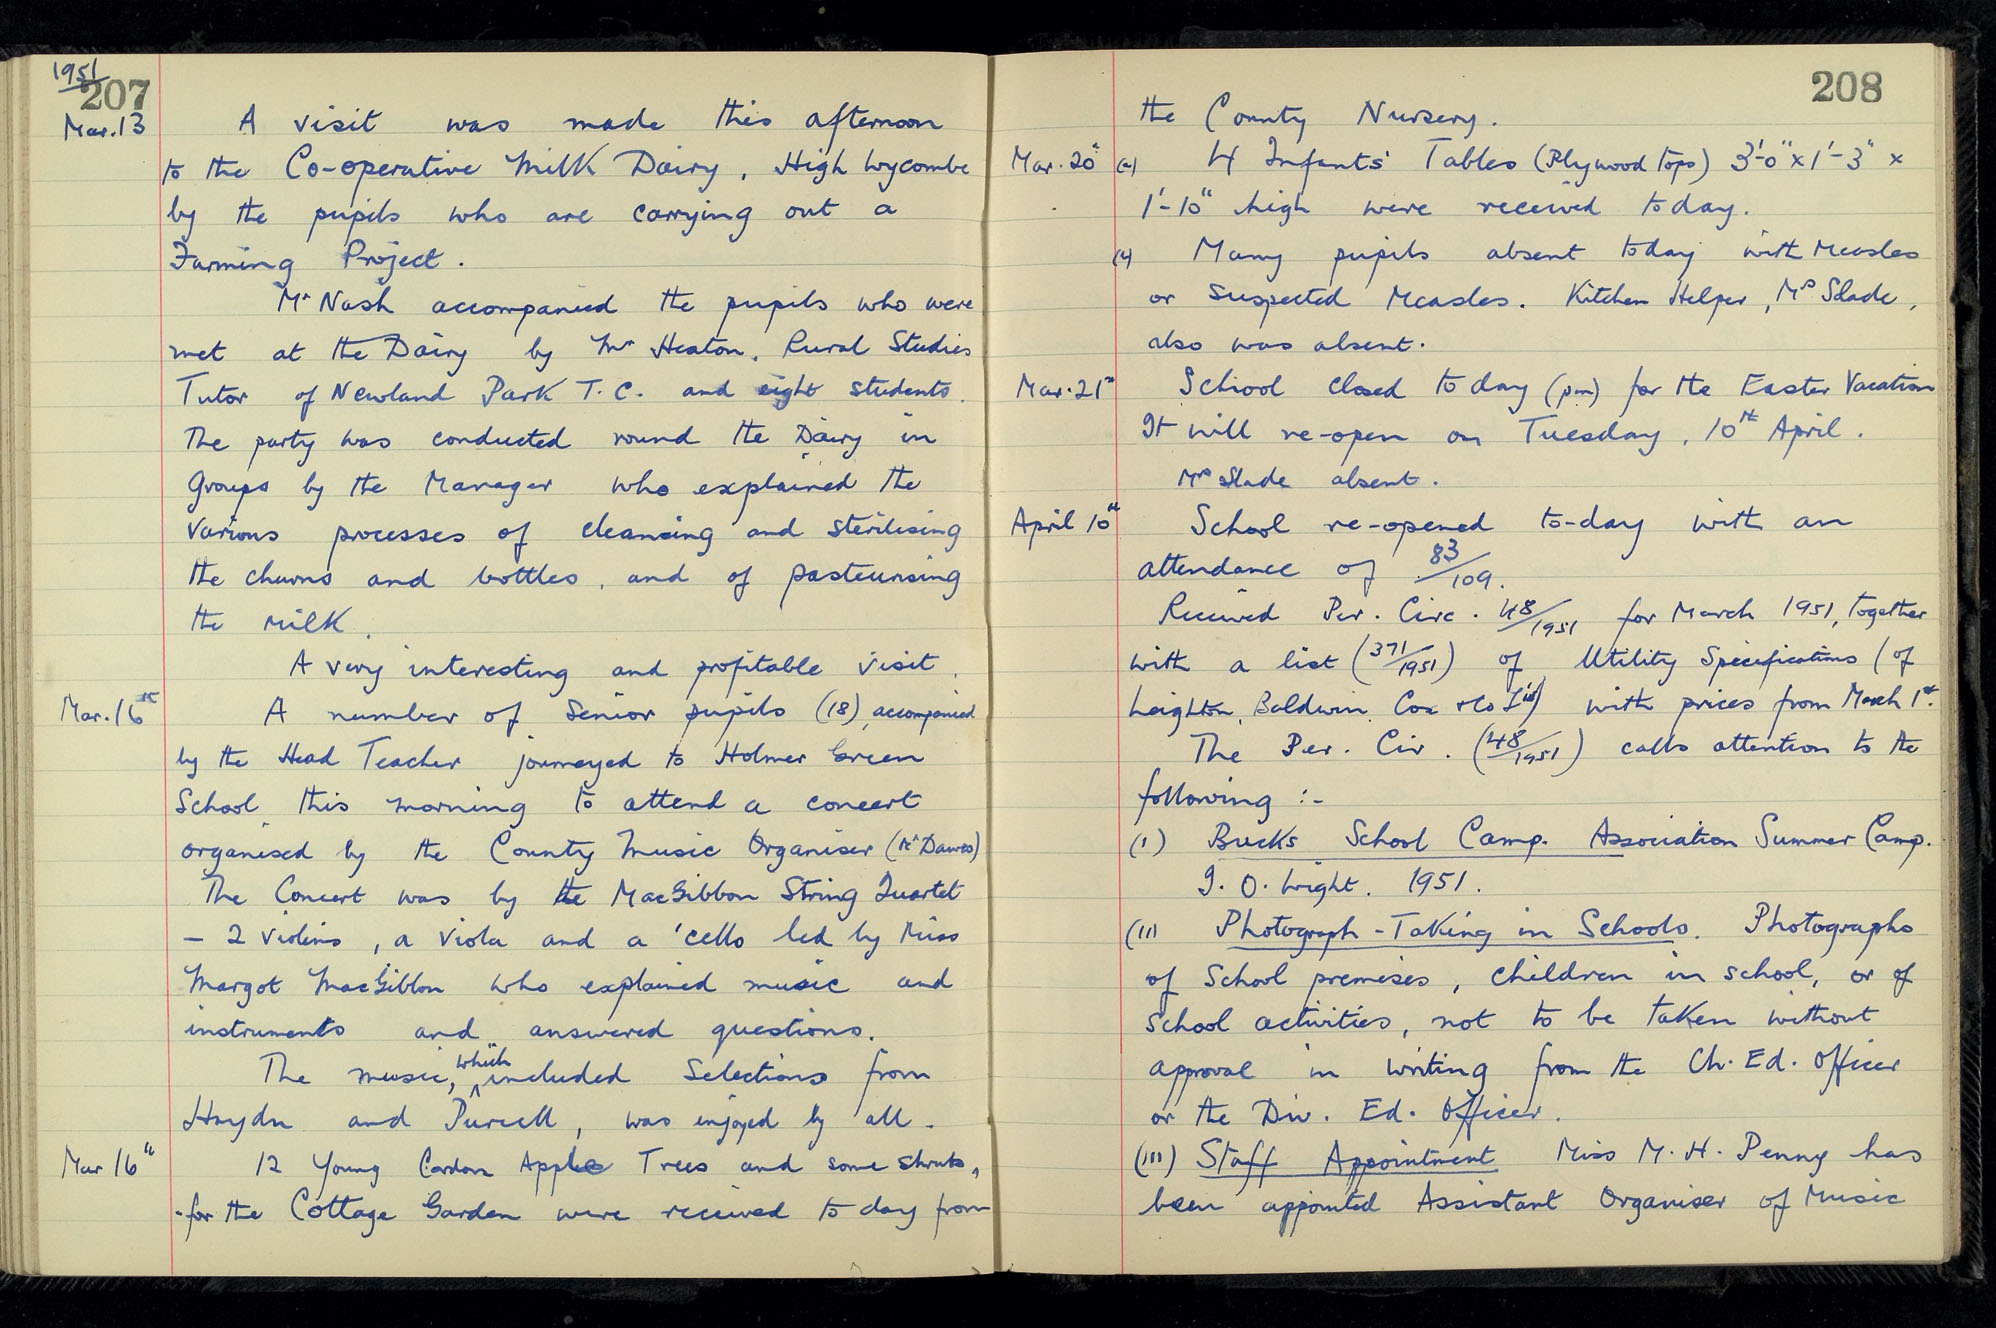 1951
207
Mar. 13 A visit was made this afternoon
to the Co-operative Milk Dairy, High Wycombe
by the pupils who are carrying out a
Farming Project.
Mr Nash accompanied the pupils who were
met at the Dairy by Mr Heaton, Rural Studies
Tutor of Newland Park T.C. and eight students.
The party was conducted round the Dairy in
Groups by the Manager who explained the
various processes of cleansing and sterilising
the churns and bottles, and of pasteurising
the milk.
A very interesting and profitable visit.
Mar. 16th A number of Senior pupils (18), accompanied
by the Head Teacher journeyed to Holmer Green
School this morning to attend a concert
organised by the County Music Organiser (Mr Dawes)
The Concert was by the MacGibbon String Quartet
- 2 Violins, a Viola and a 'cello led by Miss
Margot MacGibbon who explained music and
instruments and answered questions.
The music, which included Selections from
Haydn and Purcell, was enjoyed by all.
Mar 16th 12 Young Cordon Apple Trees and some shrubs,
for the Cottage Garden were received to day from
208
the County Nursery.
Mar. 20th 4 Infants' Tables (Plywood Tops) 3'-0" x 1'-3" x
1'-10" high were received today.
Many pupils absent today with Measles
or suspected Measles. Kitchen Helper, Mrs Slade,
also was absent.
Mar. 21st School closed today (pm) for the Easter Vacation
It will re-open on Tuesday, 10th April.
Mrs Slade absent.
April 10th School re-opened to-day with an
attendance of 83/109.
Received Per. Circ. 48/1951 for March 1951, together
with a list (371/1951) of Utility Specifications (of
Leighton, Baldwin, Cox & Co Ltd) with prices from March 1st.
The Per. Cir. (48/1951) calls attention to the
following :-
(i) Bucks School Camp. Association Summer Camp.
I.O. Wight. 1951.
(ii) Photograph-Taking in Schools. Photographs
of School premises, children in school, or of
School activities, not to be taken without
approval in writing from the Ch. Ed. Officer
or the Div. Ed. Officer.
(iii) Staff Appointment Miss M. H. Penny has
been appointed Assistant Organiser of Music